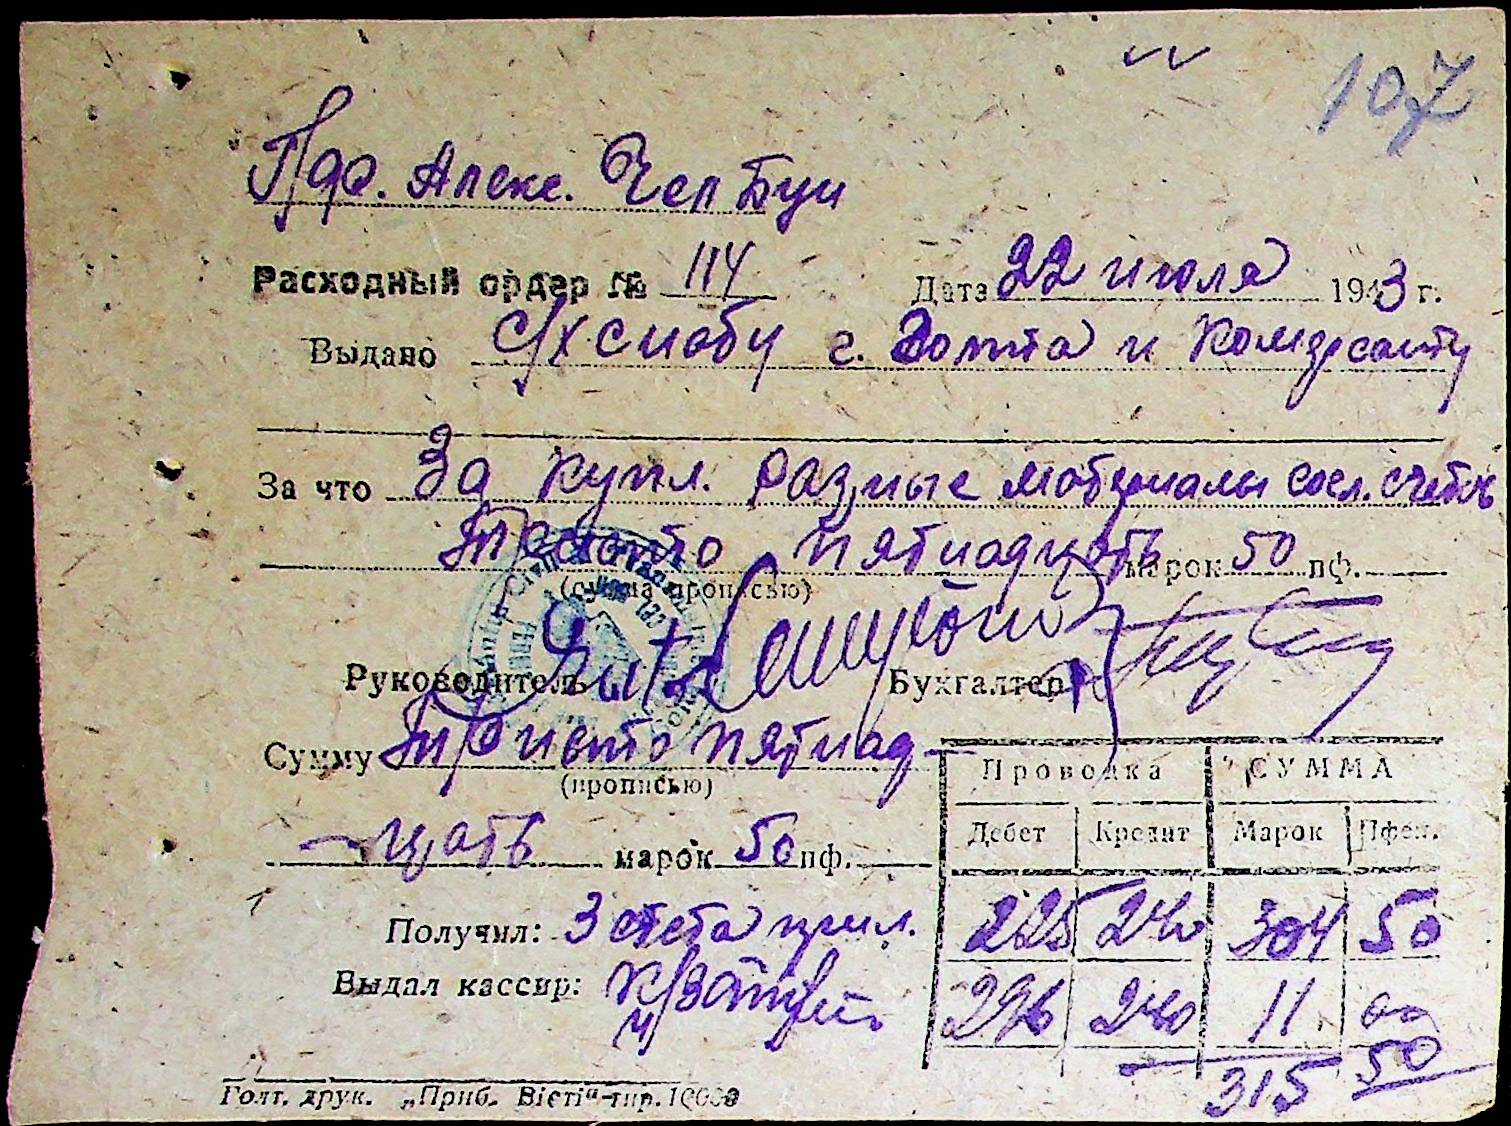 107
Расходный ордер № 114 Дата 22 июля 1943 г.
Выдано с/х снабу г. Голта и Коменданту
За что За купл. разные материалы согл. счетов
Триста пятнадцать марок 50 пф.
(сумма прописью)
Руководитель Бухгалтер
Сумму Триста пятнад-
(прописью)
-цать марок 50 пф.
Проводка СУММА
Дебет Кредит Марок Пфен.
Получил: 3 счета прил. 225 240 304 50
Выдал кассир: 296 240 11 00
315 50
Голт. друк. „Приб. Вісті“-тир. 10000